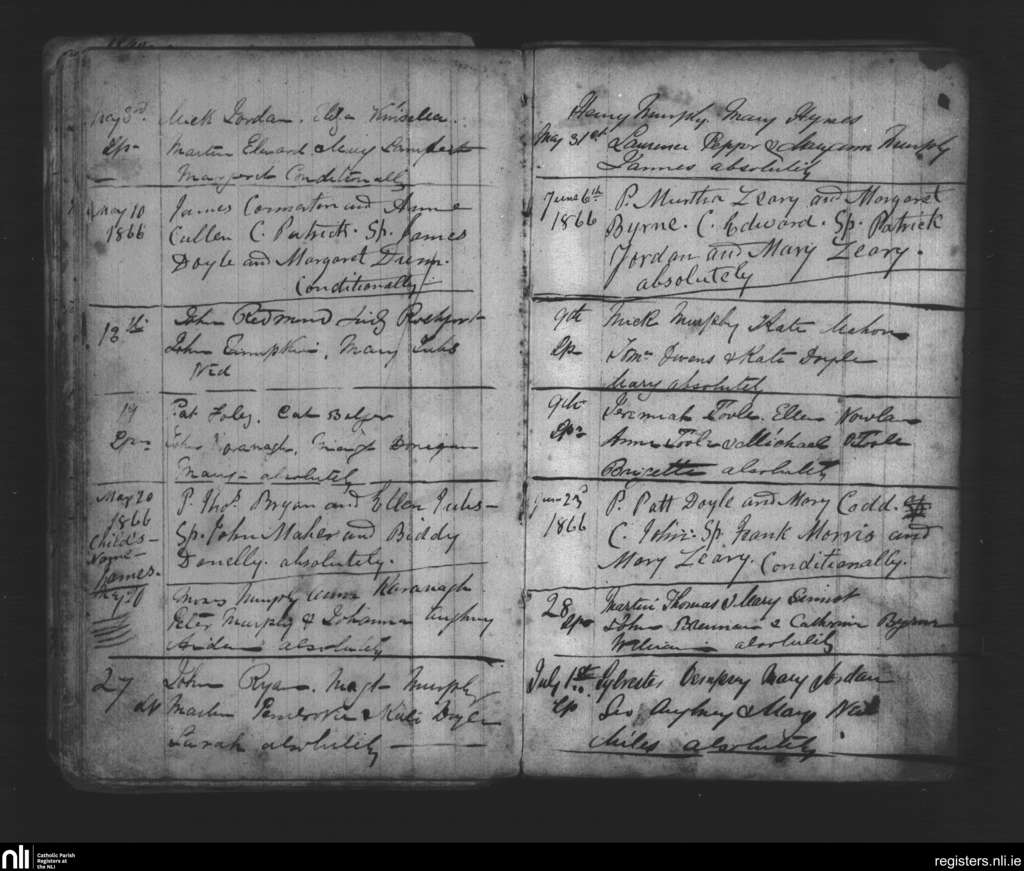 May 3rd. Mick Jordan. Eliza Kinselea.
Sp. Martin Edward Mary Lambert
Margaret Conditionally
May 10 James Comerton and Anne
1866 Cullen C. Patrick. Sp. James
Doyle and Margaret
Conditionally
13th John Redmond Rochfort
John Mary Jubs
Ned
19 Pat Foley. Cat Bolger
Sps John Kavanagh, Donegan
Mary absolutely
May 20 P. Thos. Bryan and Ellen Jubs
1866 Sp. John Maher and Biddy
Child's Donelly. absolutely.
Name
James.
May 20 Moses Murphy Anne Kavanagh
Peter Murphy & Johanna Aughney
absolutely
27 John Ryan. Magt Murphy
Sp Martin Pembroke & Kate Doyle
Sarah absolutely
Henry Murphy. Mary Hynes
May 31st Laurence Pepper & Maryanne Murphy
James absolutely
June 6th P. Murtha Leary and Margaret
1866 Byrne. C. Edward. Sp. Patrick
Jordan and Mary Leary.
absolutely
9th Mick Murphy Kate Mahon
Sp Thos. Owens & Kate Doyle
Mary absolutely
9th Jeremiah Toole. Ellen Nowlan
Sps Anne Toole & Michael OToole
Brigette absolutely
June 23d P. Patt Doyle and Mary Codd.
1866 C. John. Sp. Frank Morris and
Mary Leary. Conditionally.
28 Martin Thomas & Mary Sinnot
Sp John Brennan & Catherine Byrne
William absolutely
July 1st Sylvester Dempsey Mary Jordan
Sp Aughney & Mary
Miles absolutely
nli
Catholic Parish
Registers at
the NLI
registers.nli.ie